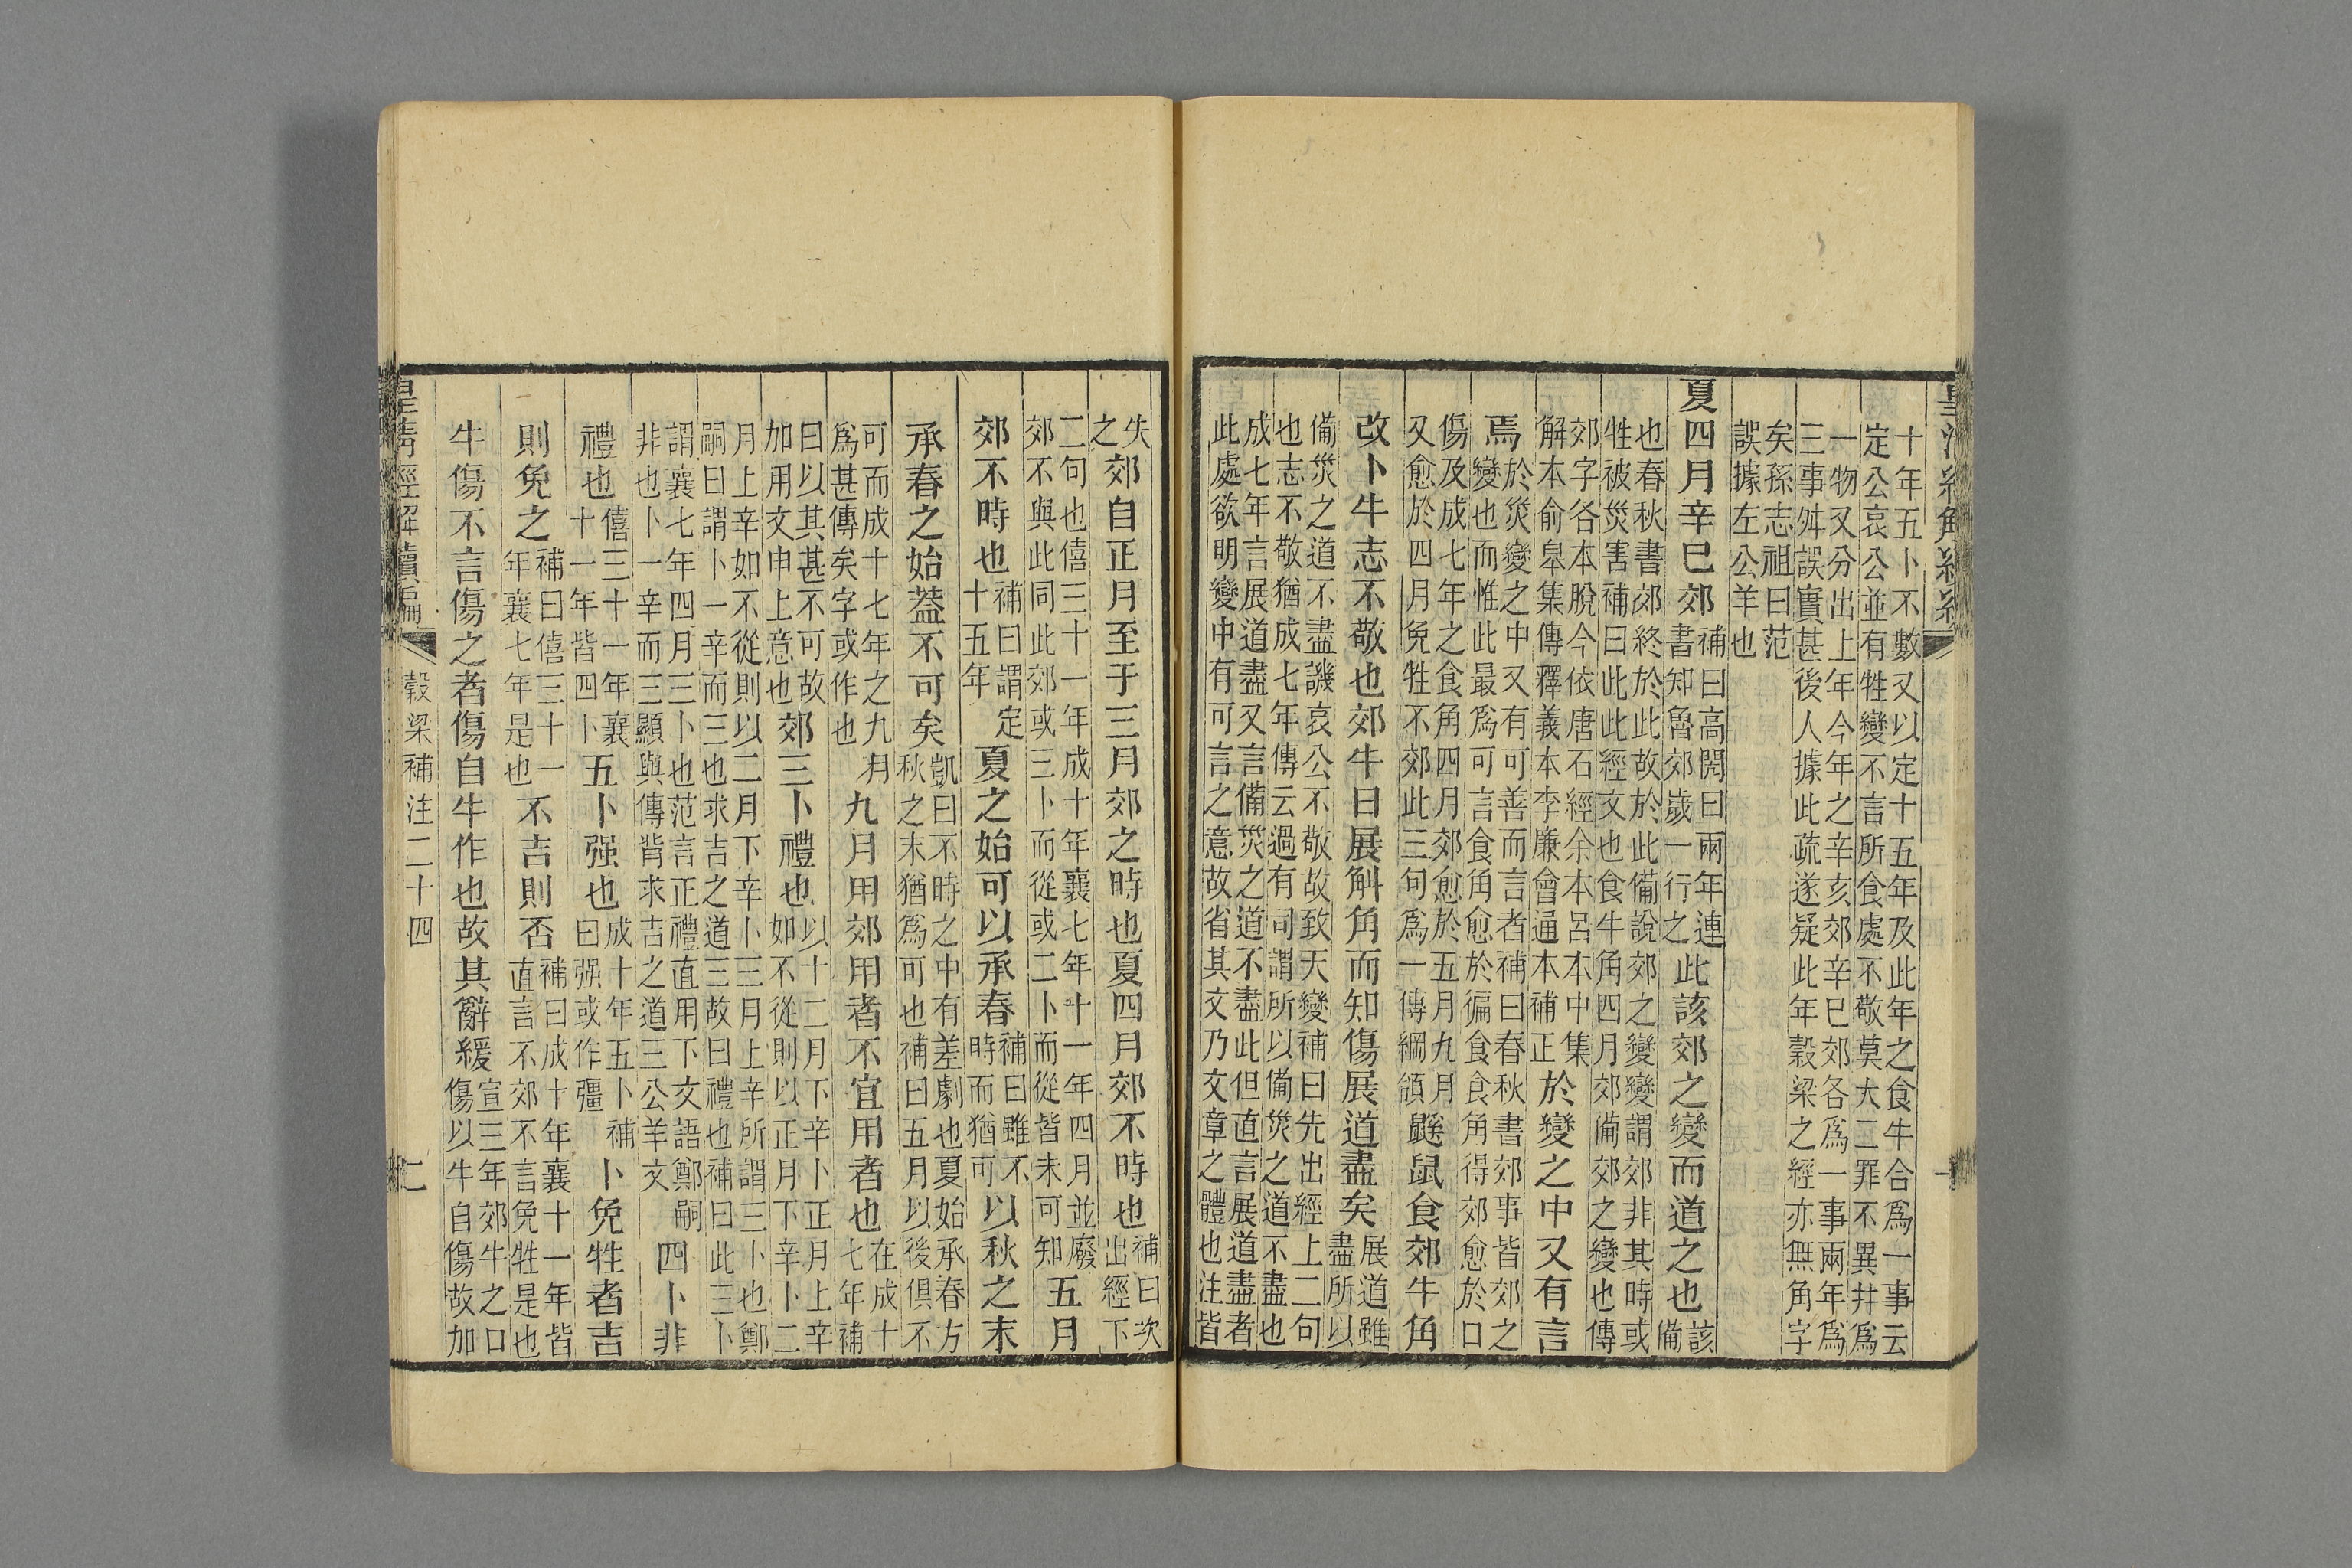 十年五卜不數又以定十五年及此年之食牛合爲一事云
定公哀公並有牲變不言所食處不敬莫大二罪不異并爲
一物又分出上年今年之辛亥郊辛巳郊各爲一事兩年爲
三事舛誤實甚後人據此疏遂疑此年穀梁之經亦無角字
矣孫志祖曰范
誤據左公羊也
夏四月辛巳郊補曰高閌曰兩年連書知魯郊歲一行之此該郊之變而道之也該備
也春秋書郊終於此故於此備說郊之變變謂郊非其時或
牲被災害補曰此此經文也食牛角四月郊備郊之變也傳
郊字各本脫今依唐石經余本呂本中集解本俞皋集傳釋義本李廉會通本補正於變之中又有言
焉於災變之中又有可善而言者補曰春秋書郊事皆郊之變也而惟此最爲可言食角愈於徧食食角得郊愈於口
傷及成七年之食角四月郊愈於五月九月又愈於四月免牲不郊此三句爲一傳綱領鼷鼠食郊牛角
改卜牛志不敬也郊牛日展斛角而知傷展道盡矣展道雖盡所以
備災之道不盡譏哀公不敬故致天變補曰先出經上二句
也志不敬猶成七年傳云過有司謂所以備災之道不盡也
成七年言展道盡又言備災之道不盡此但直言展道盡者
此處欲明變中有可言之意故省其文乃文章之體也注皆
失之郊自正月至于三月郊之時也夏四月郊不時也補曰次出經下
二句也僖三十一年成十年襄七年十一年四月並廢郊不與此同此郊或三卜而從或二卜而從皆未可知五月
郊不時也補曰謂定十五年夏之始可以承春補曰雖不時而猶可以秋之末
承春之始蓋不可矣凱曰不時之中有差劇也夏始承春方秋之末猶爲可也補曰五月以後俱不
可而成十七年之九月爲甚傳矣字或作也九月用郊用者不宜用者也在成十七年補
曰以其甚不可故加用文申上意也郊三卜禮也以十二月下辛卜正月上辛如不從則以正月下辛卜二
月上辛如不從則以二月下辛卜三月上辛所謂三卜也鄭
嗣曰謂卜一辛而三也求吉之道三故曰禮也補曰此三卜
謂襄七年四月三卜也范言正禮直用下文語鄭嗣非也卜一辛而三顯與傳背求吉之道三公羊文四卜非
禮也僖三十一年襄十一年皆四卜五卜强也成十年五卜補曰强或作彊卜免牲者吉
則免之補曰僖三十一年襄七年是也不吉則否補曰成十年襄十一年皆直言不郊不言免牲是也
牛傷不言傷之者傷自牛作也故其辭緩宣三年郊牛之口傷以牛自傷故加
皇清經解續編 穀梁補注二十四 二